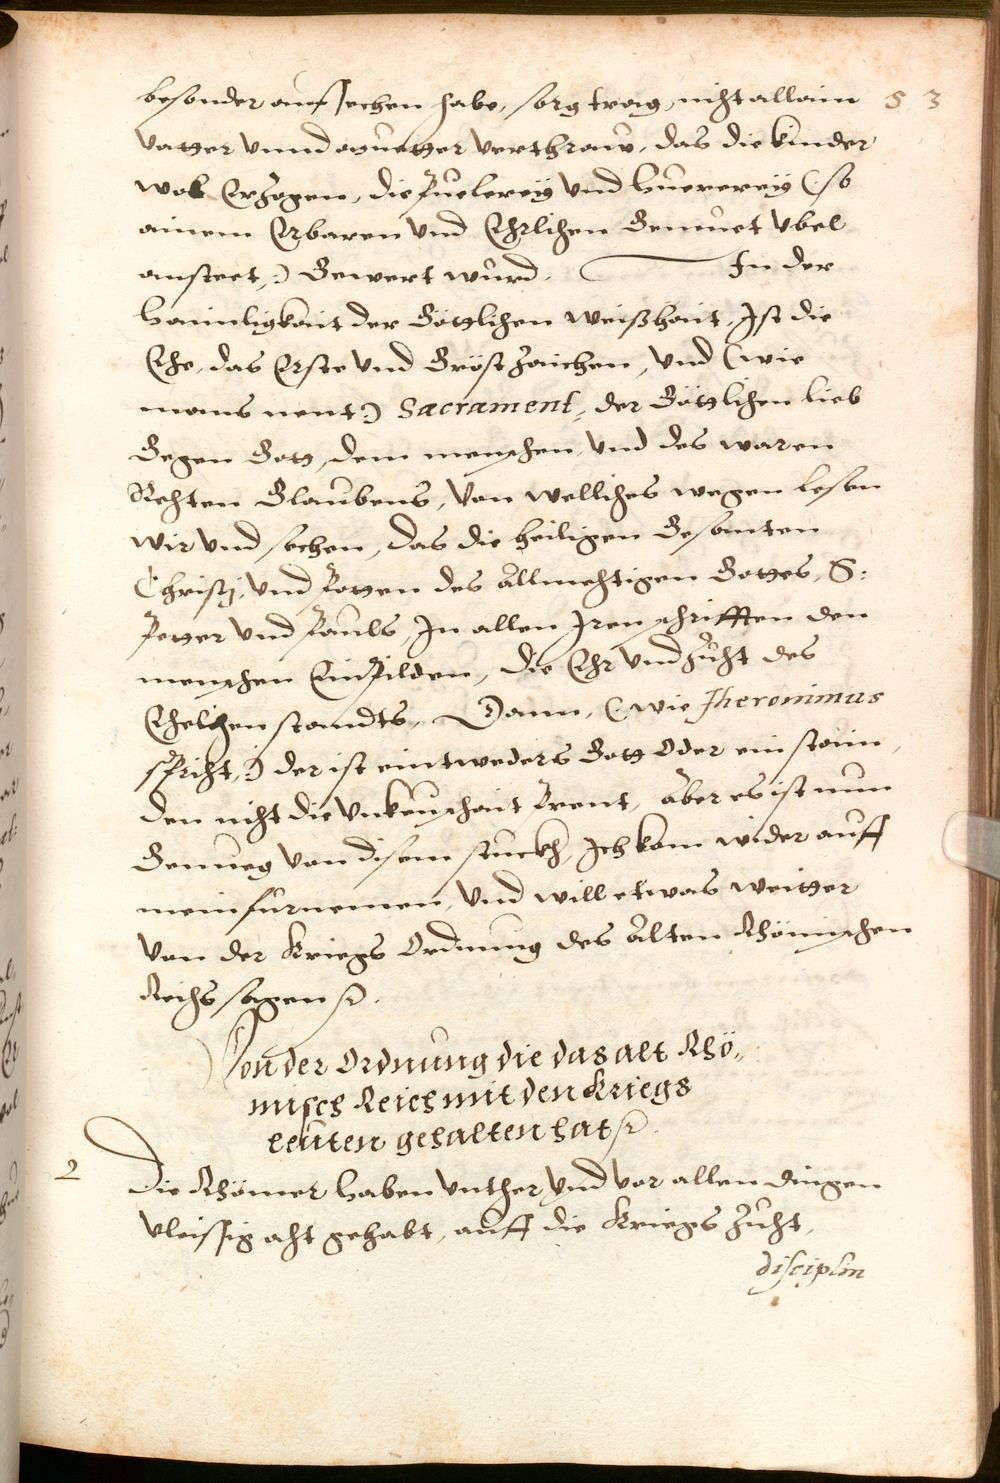 besonder aufsechen habe, sorg trag, nicht allain 53
Vatter Vnnd Muetter verthraw, das die kinder
wol Erzogen, die Puelerey Vnd huererey (: so
ainem Erbaren Vnd Ehrlichen Gemüet Vbel
ansteet, :) Gewert würd. In der
hainligkait der Göttlichen weißhait, Ist die
Ehe, das Erste Vnd Gröst Zaichen, Vnd (: wie
mans nent :) Sacrament, der Göttlichen lieb
Gegen Gott, dem menschen, Vnd des waren
Rechten Glaubens, Von welliches wegen lesen
wir Vnd sechen, das die heiligen Gesanten
Christj, Vnd Potten des Allmechtigen Gottes, S:
Petter Vnd Pauls, In allen Iren schrifften den
menschen Einpilden, die Ehr Vnd Zucht des
Ehelichen standts, Dann, (: wie Jheronimus
spricht, :) der ist eintweders Gott Oder ein stain,
den nicht die Vnkeuschait prent, Aber es ist nun
Genueg Von disem stuckh, Ich kom wider auff
mein fürnemen, Vnd will etwas weitter
Von der Kriegs Ordnung des Alten Rhömischen
Reichs sagen etc.
Von der Ordnung die das alt Rhö„
misch Reich mit den Kriegs
leüten gehalten hat etc.
2 Die Rhömer haben Vnther Vnd vor allen dingen
vleissig acht gehabt, auff die Kriegs Zucht,
disciplin